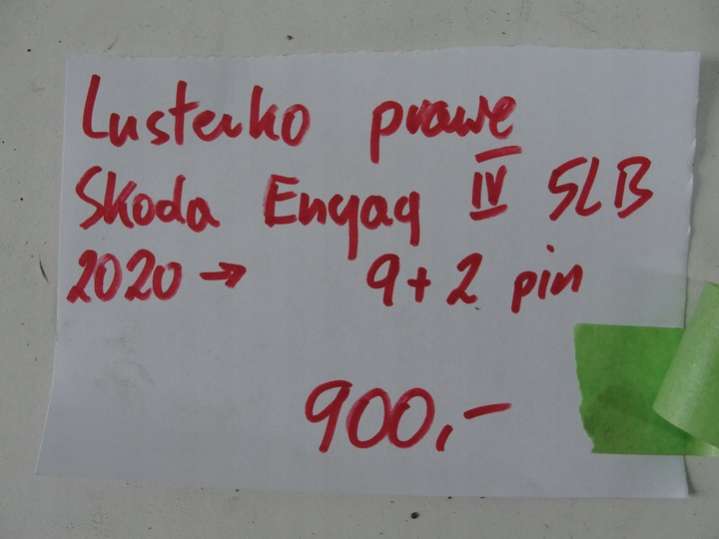 Lusterko prawe
Skoda Enyaq IV 5LB
2020 → 9+2 pin
900,-